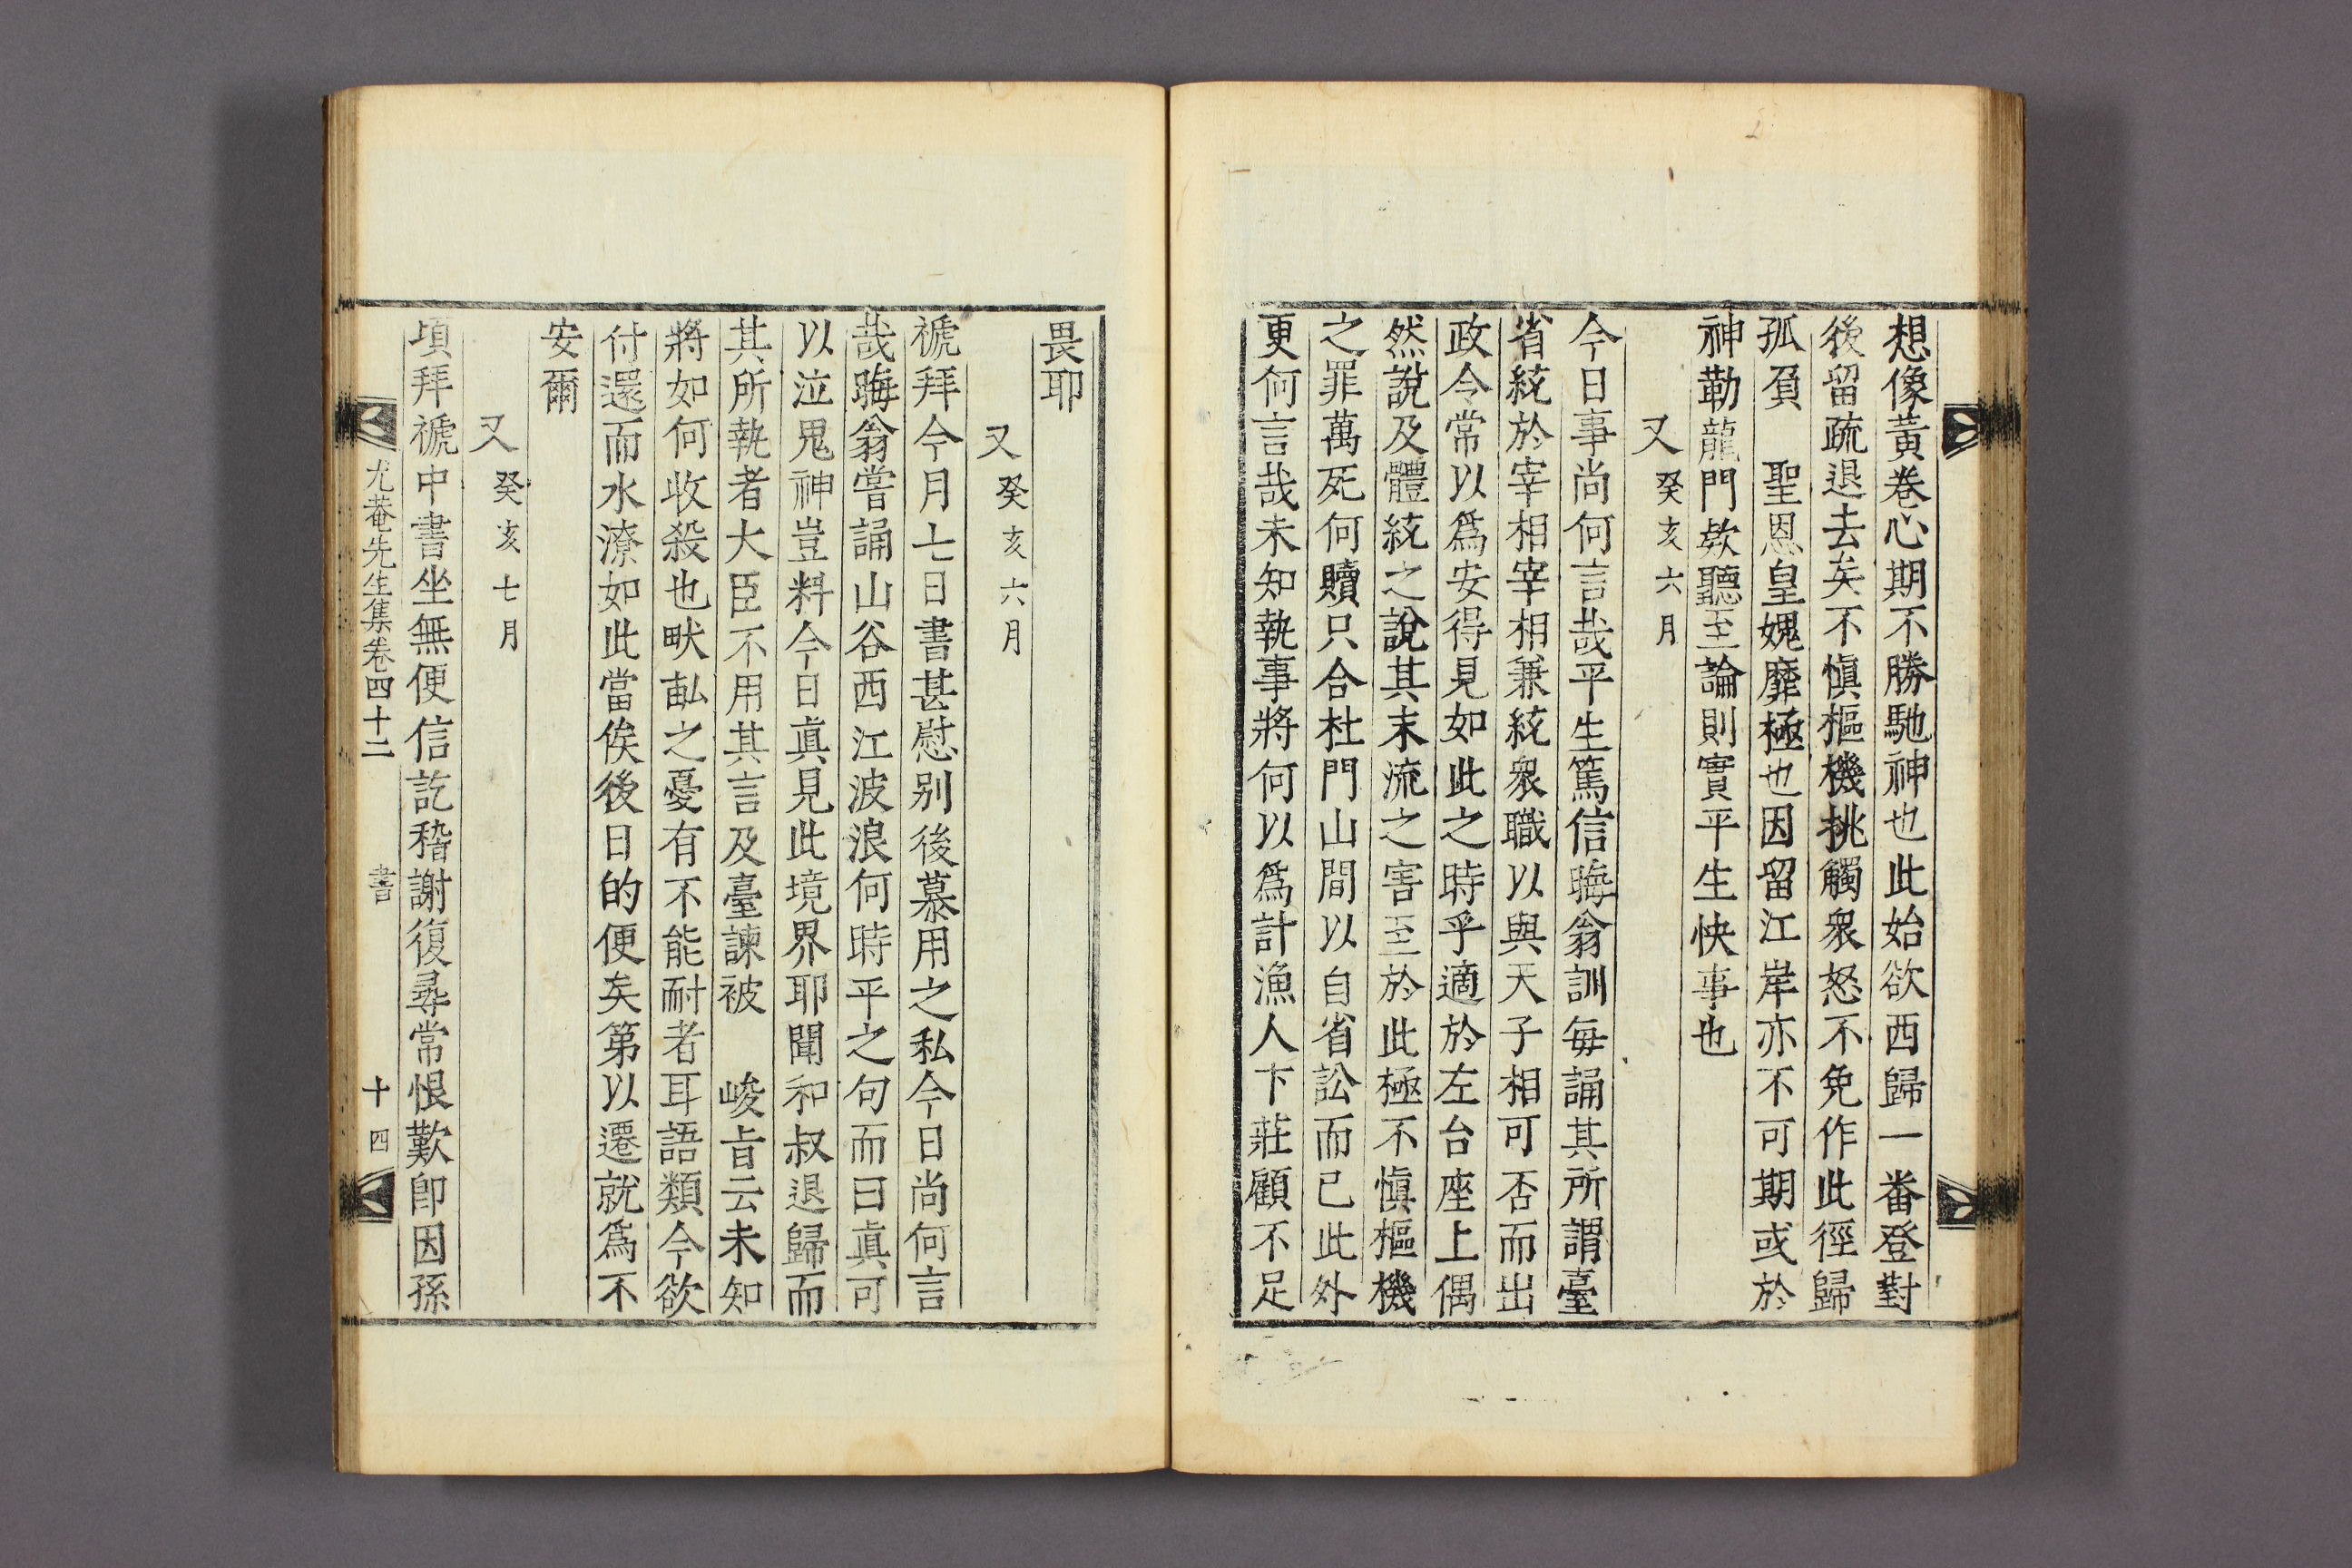 想像黃卷心期不勝馳神也此始欲西歸一番登對
後留疏退去矣不愼樞機挑觸衆怒不免作此徑歸
孤負　聖恩皇媿靡極也因留江岸亦不可期或於
神勒龍門欸聽至論則實平生快事也
又癸亥六月
今日事尚何言哉平生篤信晦翁訓每誦其所謂臺
省統於宰相宰相兼統衆職以與天子相可否而出
政令常以爲安得見如此之時乎適於左台座上偶
然說及體統之說其末流之害至於此極不愼樞機
之罪萬死何贖只合杜門山間以自省訟而已此外
更何言哉未知執事將何以爲計漁人下莊顧不足
畏耶
又癸亥六月
褫拜今月七日書甚慰別後慕用之私今日尚何言
哉晦翁嘗誦山谷西江波浪何時平之句而曰眞可
以泣鬼神豈料今日眞見此境界耶聞和叔退歸而
其所執者大臣不用其言及臺諫被　峻旨云未知
將如何收殺也畎畝之憂有不能耐者耳語類今欲
付還而水潦如此當俟後日的便矣第以遷就爲不
安爾
又癸亥七月
頃拜褫中書坐無便信訖稽謝復尋常恨歎卽因孫
尤菴先生集卷四十二　書　十四